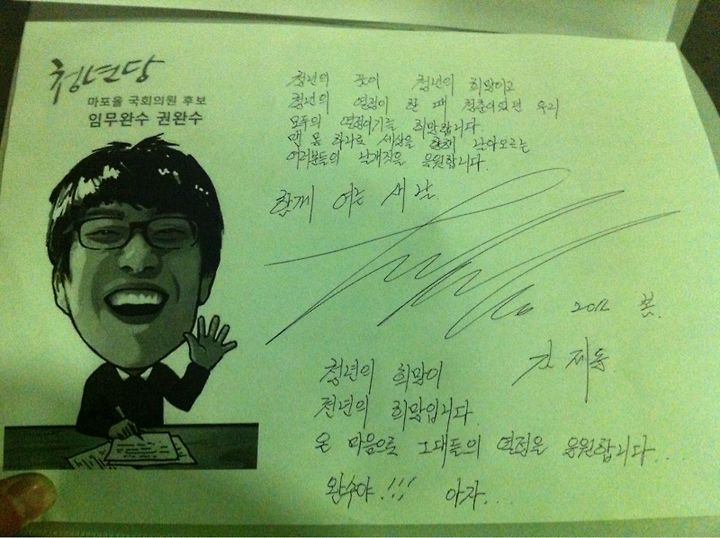 청년당
마포을 국회의원 후보
임무완수 권완수
청년의 꿈이 청년의 희망이고
청년의 열정이 한 때 청춘이었던 우리
모두의 열정이기를 희망합니다.
맨 몸 하나로 세상을 향해 날아오르는
여러분들의 날개짓을 응원합니다.
함께 여는 새 날
2012 봄.
김제동.
청년의 희망이
전년의 희망입니다
온 마음으로 그대들의 열정을 응원합니다...
완수야!!! 아자...